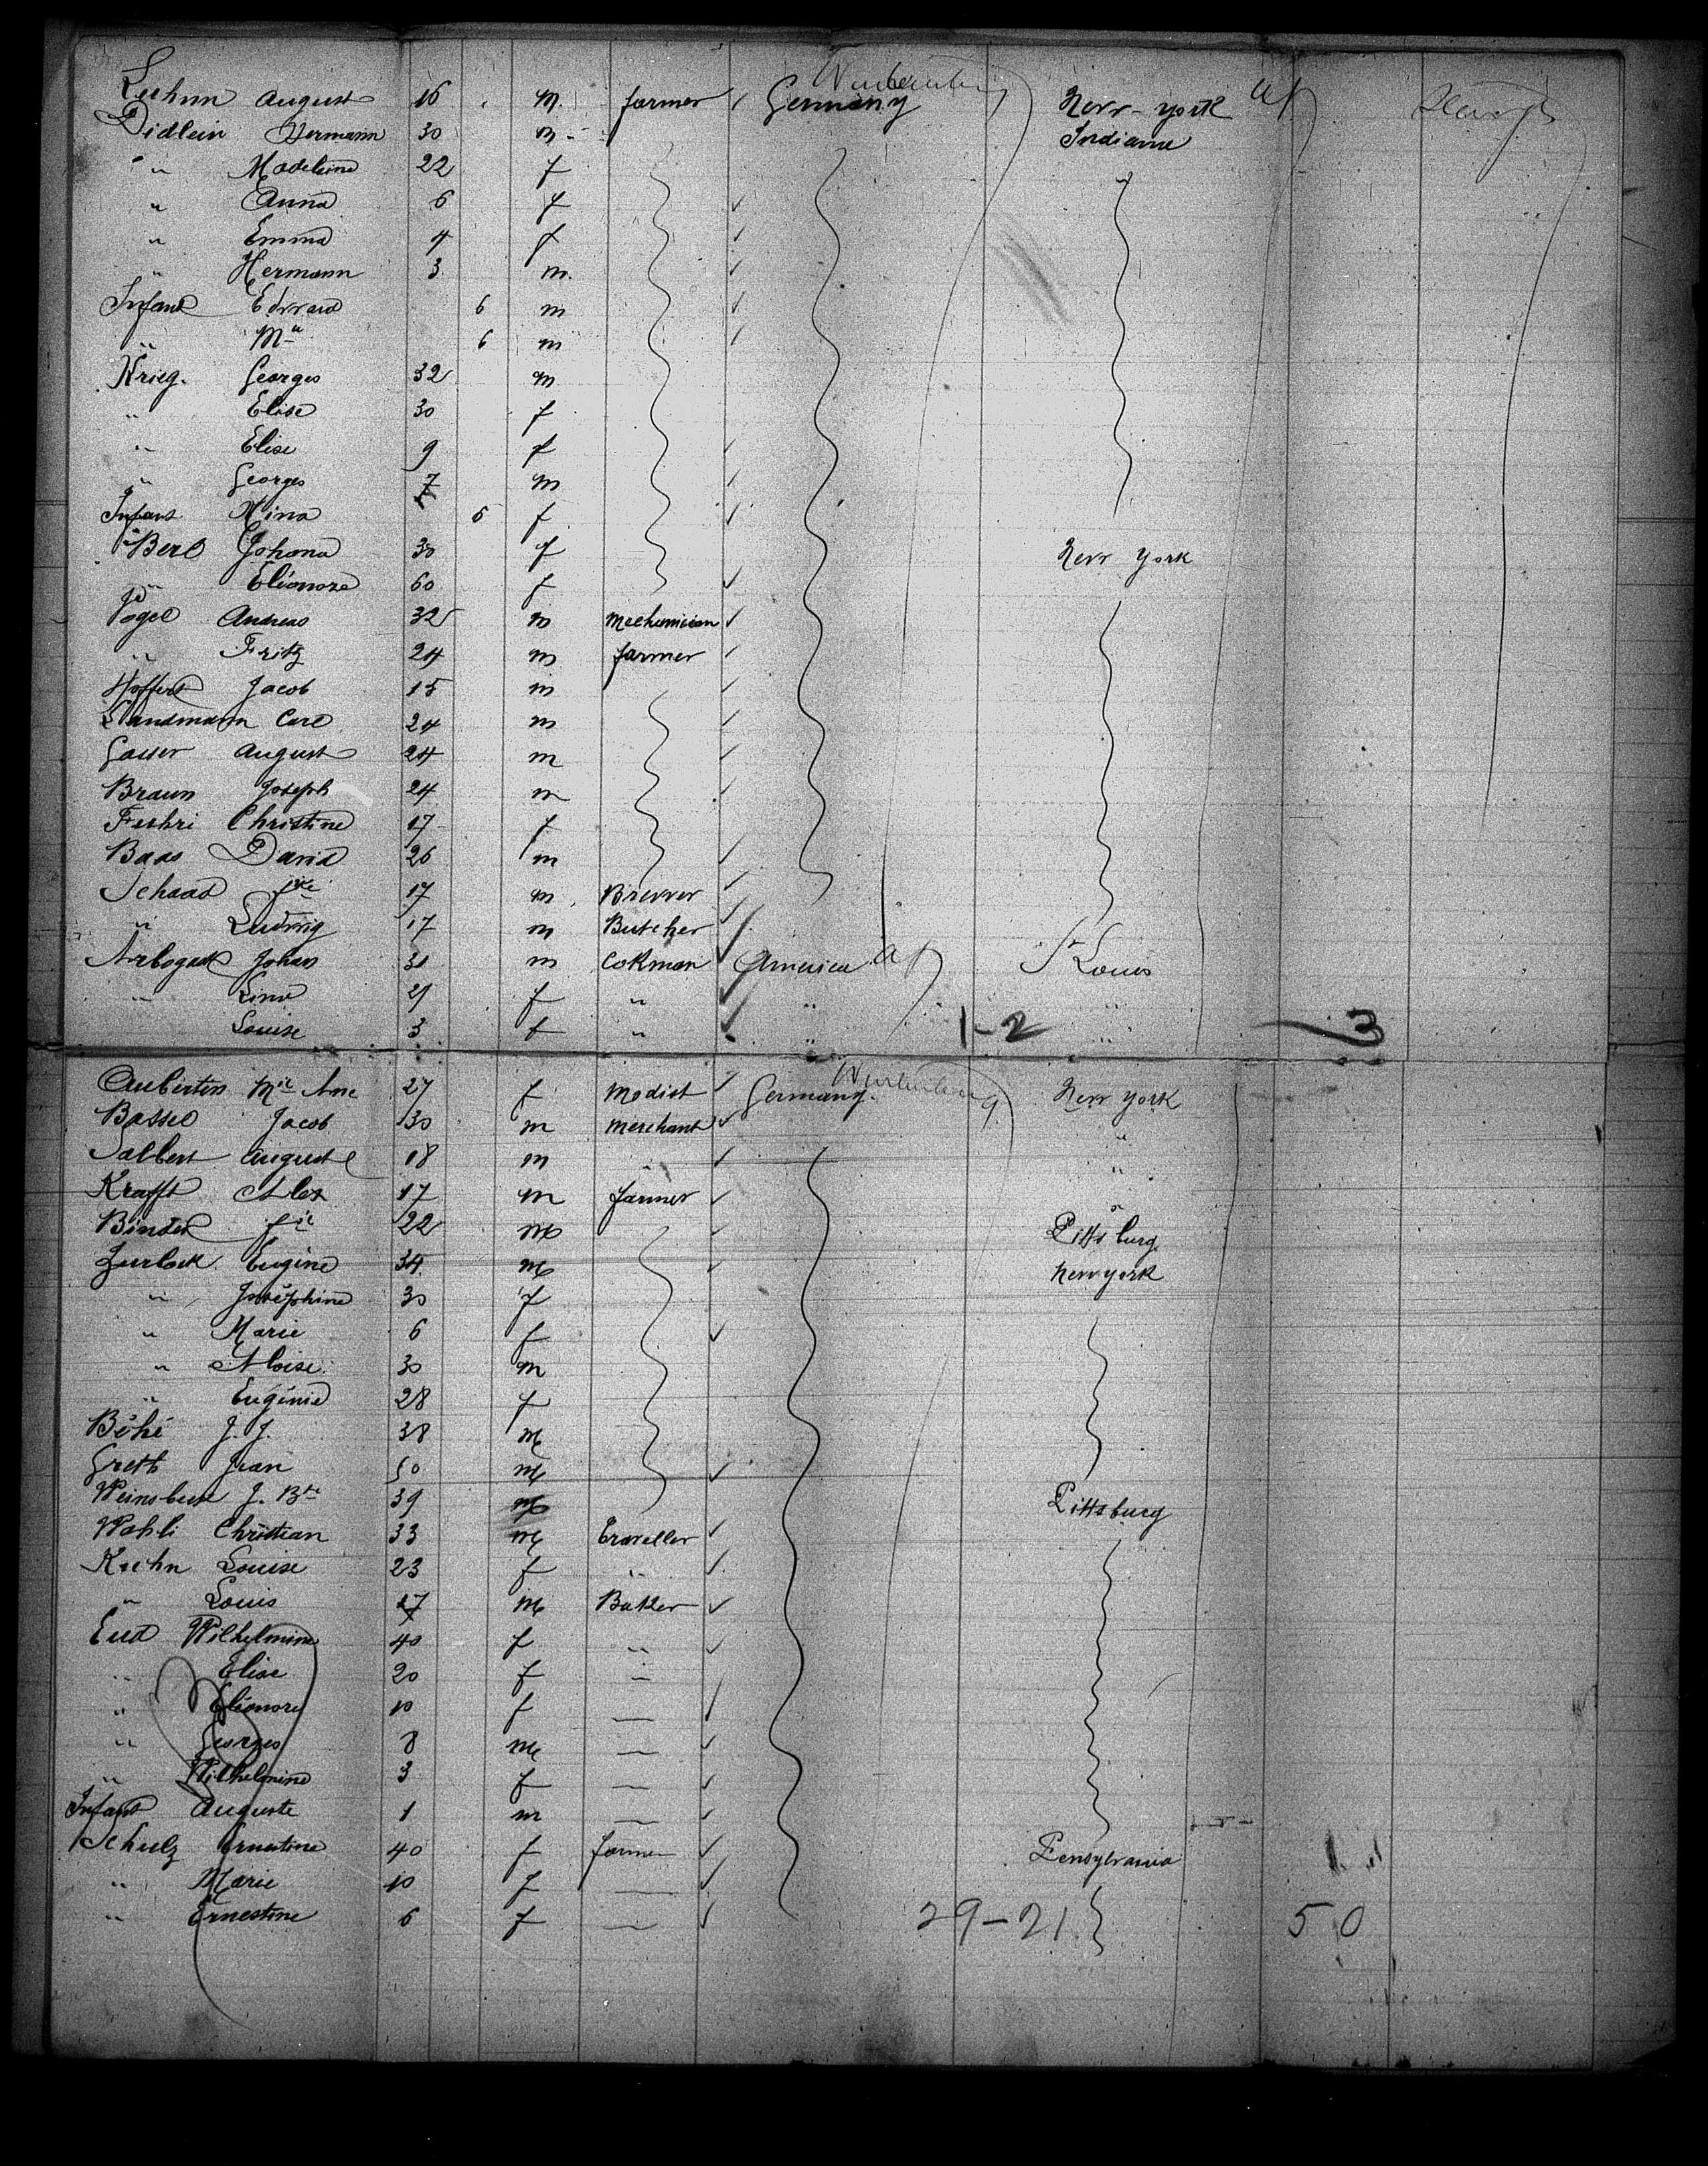 August 16 m. farmer Germany New-york
Didlein Hermann 30 m Indiana
" Madeleine 22 f
" Anna 6 f
" Emma 4 f
" Hermann 3 m.
Infant Edward 6 m
" 6 m
Krieg. Georges 32 m
" Elise 30 f
" Elise 9 f
" Georges 7 m
Infant Nina 6 f
Johana 30 f New York
" Eléonore 60 f
Vogel Andreas 32 m farmer
" Fritz 24 m farmer
Hoffert Jacob 15 m
Sandmann Carl 24 m
Gasser August 24 m
Braun Joseph 24 m
Christine 17 f
Baas David 26 m
Schaad 17 m Brewer
" Ludwig 17 m Butcher
Arbogast Johan 31 m America St Louis
" Lina 21 f " " "
Louise 3 f " " "
1-2 3
Aubertin Mie Ane 27 f Modist Germany. New york
Bossel Jacob 30 m merchant "
Salbert August 18 m "
Krafft Alex 17 m farmer "
Binder 22 m Pittsburg.
Eugène 34 m New york
" Joséphine 30 f
" Marie 6 f
" Aloise 30 m
" Eugénie 28 f
Béhé J. J. 38 m
Greth Jean 50 m
J. Bte 39 m Pittsburg
Wohli Christian 33 m traveller
Kuehn Louise 23 f "
" Louis 17 m Baker
Wilhelmine 40 f "
" Elise 20 f "
" Eléonore 10 f —
" Georges 8 m —
" Wilhelmine 3 f —
Infant Auguste 1 m —
Schulz Ernestine 40 f farmer Pensylvania
" Marie 10 f —
" Ernestine 6 f —
29-21 50